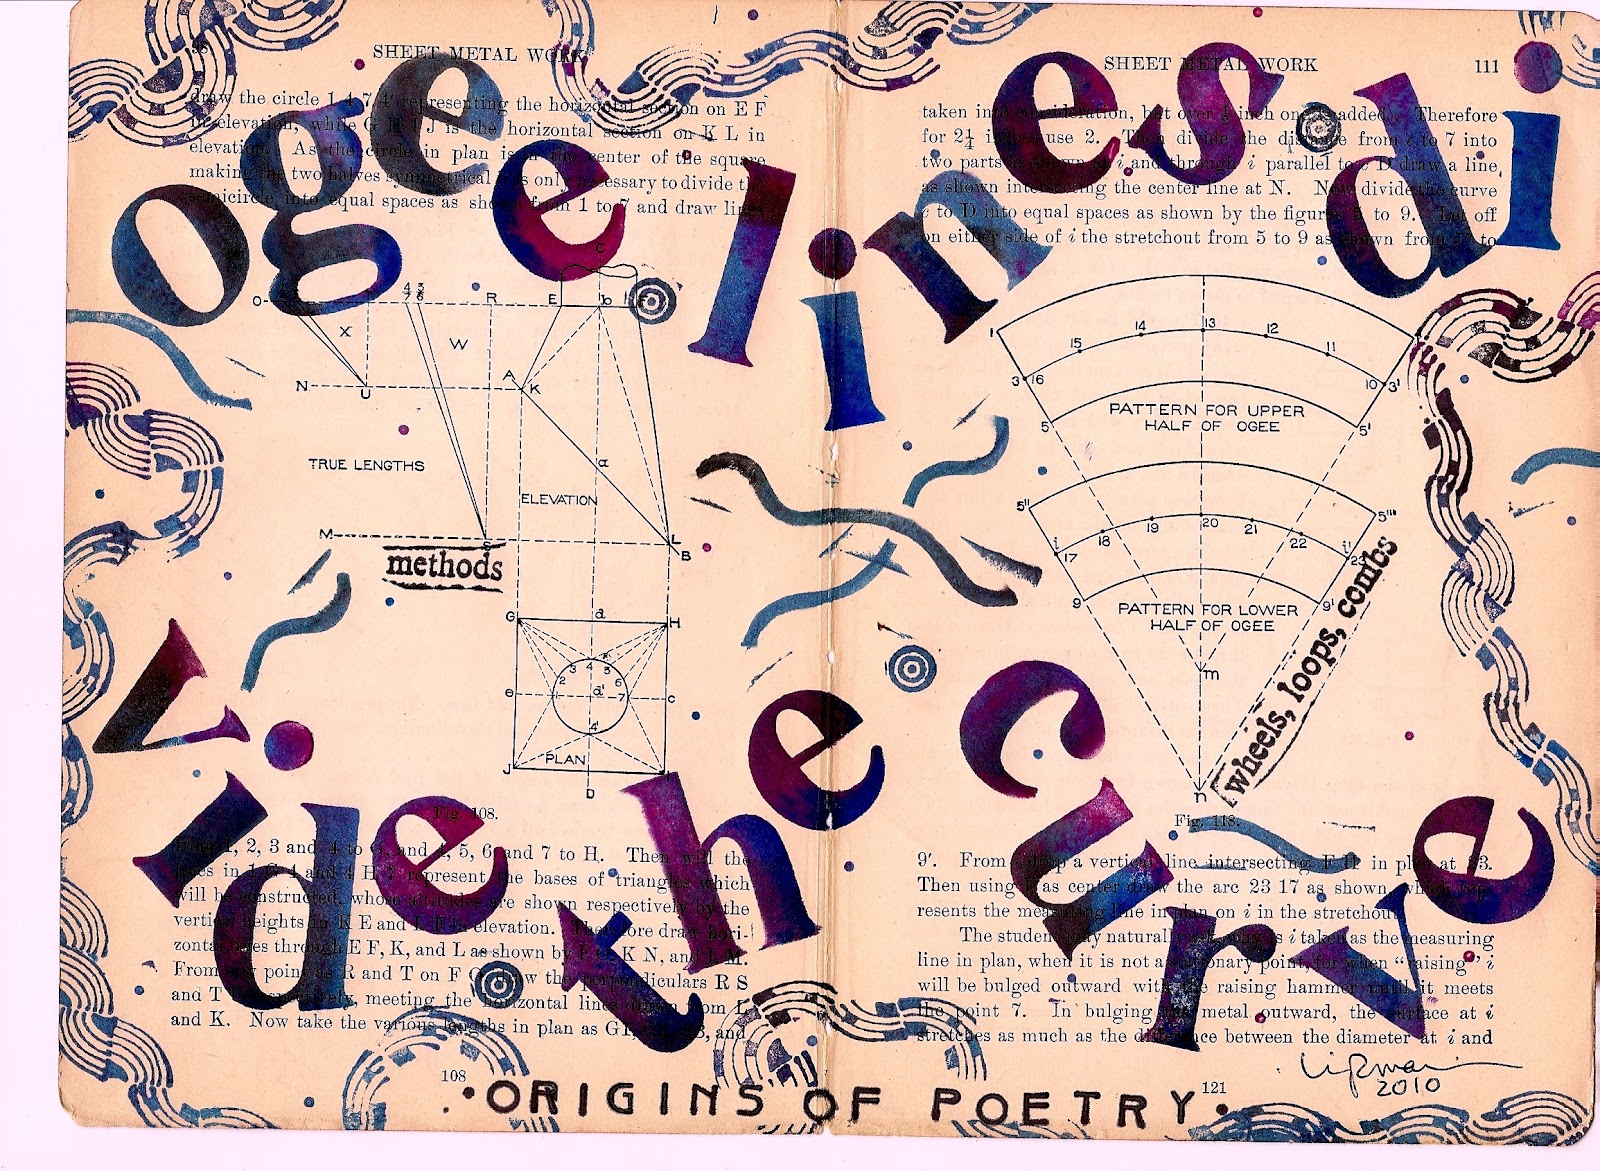 ogee lines di
vide the curve
SHEET METAL WORK
draw the circle 1 4 7 4' representing the horizontal section on E F
in elevation, while G H I J is the horizontal section on K L in
elevation. As the circle in plan is in the center of the square
making the two halves symmetrical it is only necessary to divide the
semicircle into equal spaces as shown from 1 to 7 and draw lines
O 4 3 7 6 R E b F C
X W
N U A K
TRUE LENGTHS
a
ELEVATION
M S L B
methods
G d H
3 4 5
2 6
e 1 a' 7 c
4'
J PLAN
D
Fig. 108.
1, 2, 3 and 4 to G, and 4, 5, 6 and 7 to H. Then will the
lines in 1 G 4 and 4 H 7 represent the bases of triangles which
will be constructed, whose altitudes are shown respectively by the
vertical heights in K E and L F in elevation. Therefore draw hori-
zontal lines through E F, K, and L as shown by F O, K N, and L M.
From any point as R and T on F O draw the perpendiculars R S
and T U respectively, meeting the horizontal lines drawn from L
and K. Now take the various lengths in plan as G1, and
108
SHEET METAL WORK 111
taken into consideration, but over ½ inch one is added. Therefore
for 2¼ inches use 2. Then divide the distance from to 7 into
two parts as shown at i and through i parallel to e D draw a line
as shown intersecting the center line at N. Now divide the curve
e to D into equal spaces as shown by the figures 5 to 9. Let off
on either side of i the stretchout from 5 to 9 as shown from to
1 15 14 13 12 11
3 16 10 3'
PATTERN FOR UPPER
HALF OF OGEE
5 5'
5" 5'''
i 17 18 19 20 21 22 i' 23
9 9'
PATTERN FOR LOWER
HALF OF OGEE
m
n
wheels, loops, combs
Fig. 118.
9'. From drop a vertical line intersecting F H in plan at 23.
Then using as center draw the arc 23 17 as shown, which rep-
resents the measuring line in plan on i in the stretchout.
The student may naturally ask, why is i taken as the measuring
line in plan, when it is not a stationary point, for when “raising” i
will be bulged outward with the raising hammer until it meets
the point 7. In bulging the metal outward, the surface at i
stretches as much as the difference between the diameter at i and
121
Lipman
2010
·ORIGINS OF POETRY·